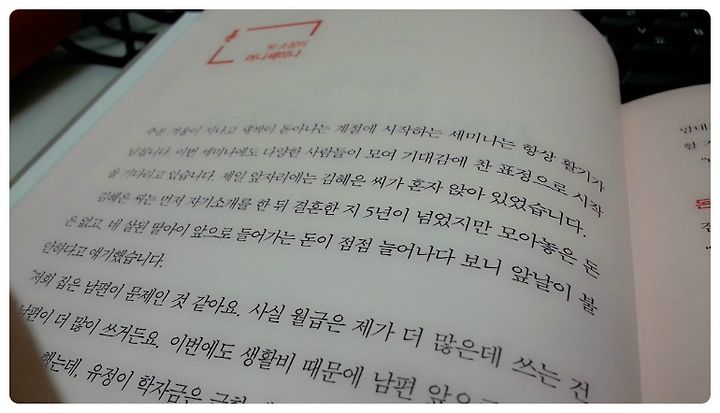 머니세미나
추운 겨울이 지나고 새싹이 돋아나는 계절에 시작하는 세미나는 항상 활기가
넘칩니다. 이번 세미나에도 다양한 사람들이 모여 기대감에 찬 표정으로 시작
을 기다리고 있습니다. 제일 앞자리에는 김혜은 씨가 혼자 앉아 있었습니다.
김혜은 씨는 먼저 자기소개를 한 뒤 결혼한 지 5년이 넘었지만 모아놓은 돈
은 없고, 네 살된 딸아이 앞으로 들어가는 돈이 점점 늘어나다 보니 앞날이 불
안하다고 얘기했습니다.
"저희 집은 남편이 문제인 것 같아요. 사실 월급은 제가 더 많은데 쓰는 건
남편이 더 많이 쓰거든요. 이번에도 생활비 때문에 남편 앞으
했는데, 유정이 학자금은
맘대
할
돈